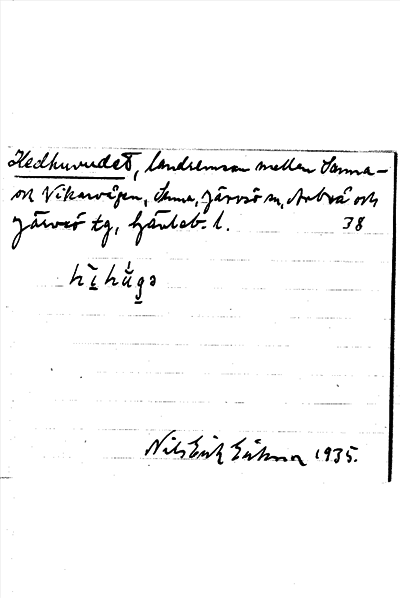 Hedhuvudet, landremsan mellan Sanna-
och Vikarvägen, Sanna, Järvsö sn, Arbrå och
Järvsö tg, Gävleb. l. 38
Nils Erik Eriksson 1935.